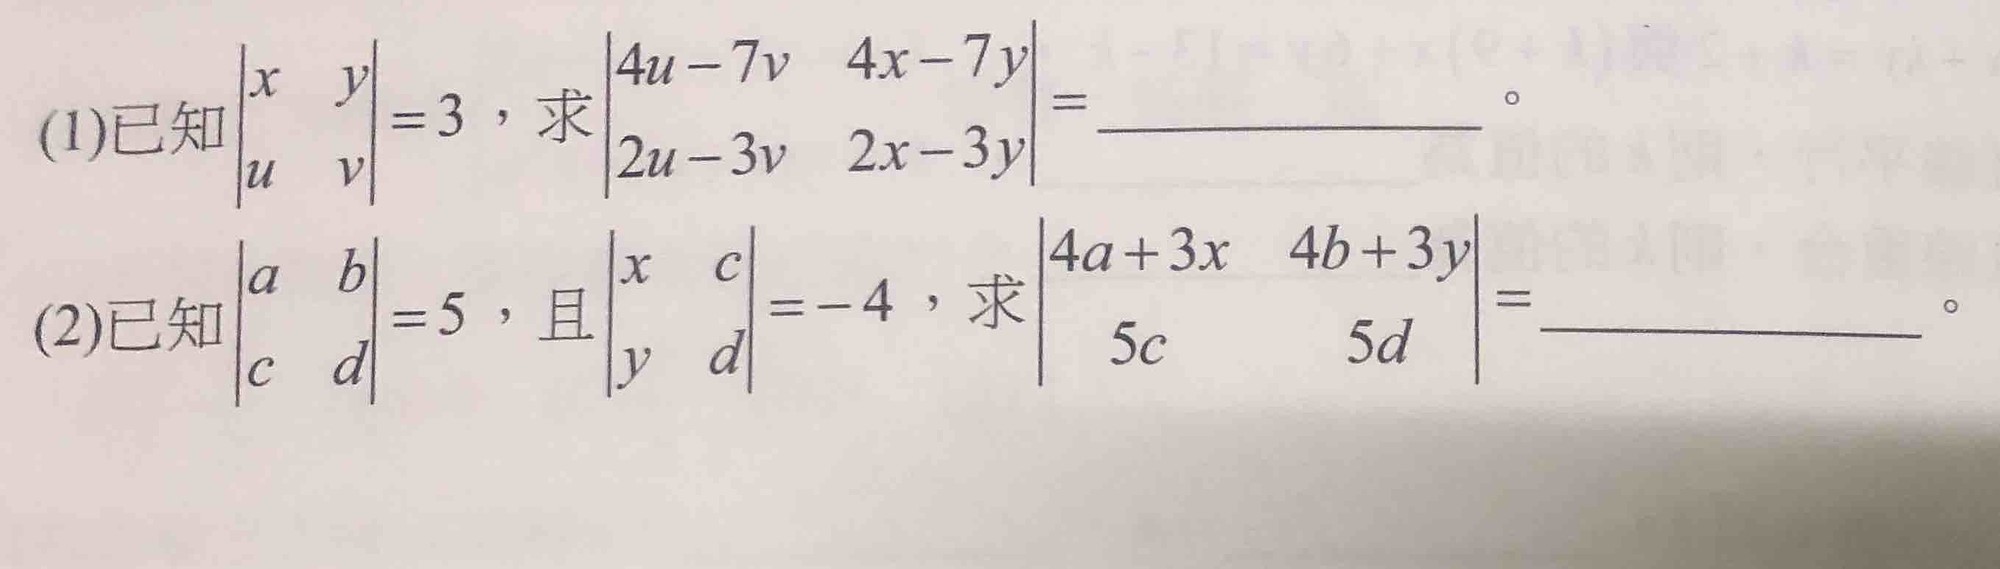 (1)已知|x y; u v|=3，求|4u−7v 4x−7y; 2u−3v 2x−3y|=________。
(2)已知|a b; c d|=5，且|x c; y d|=−4，求|4a+3x 4b+3y; 5c 5d|=________。